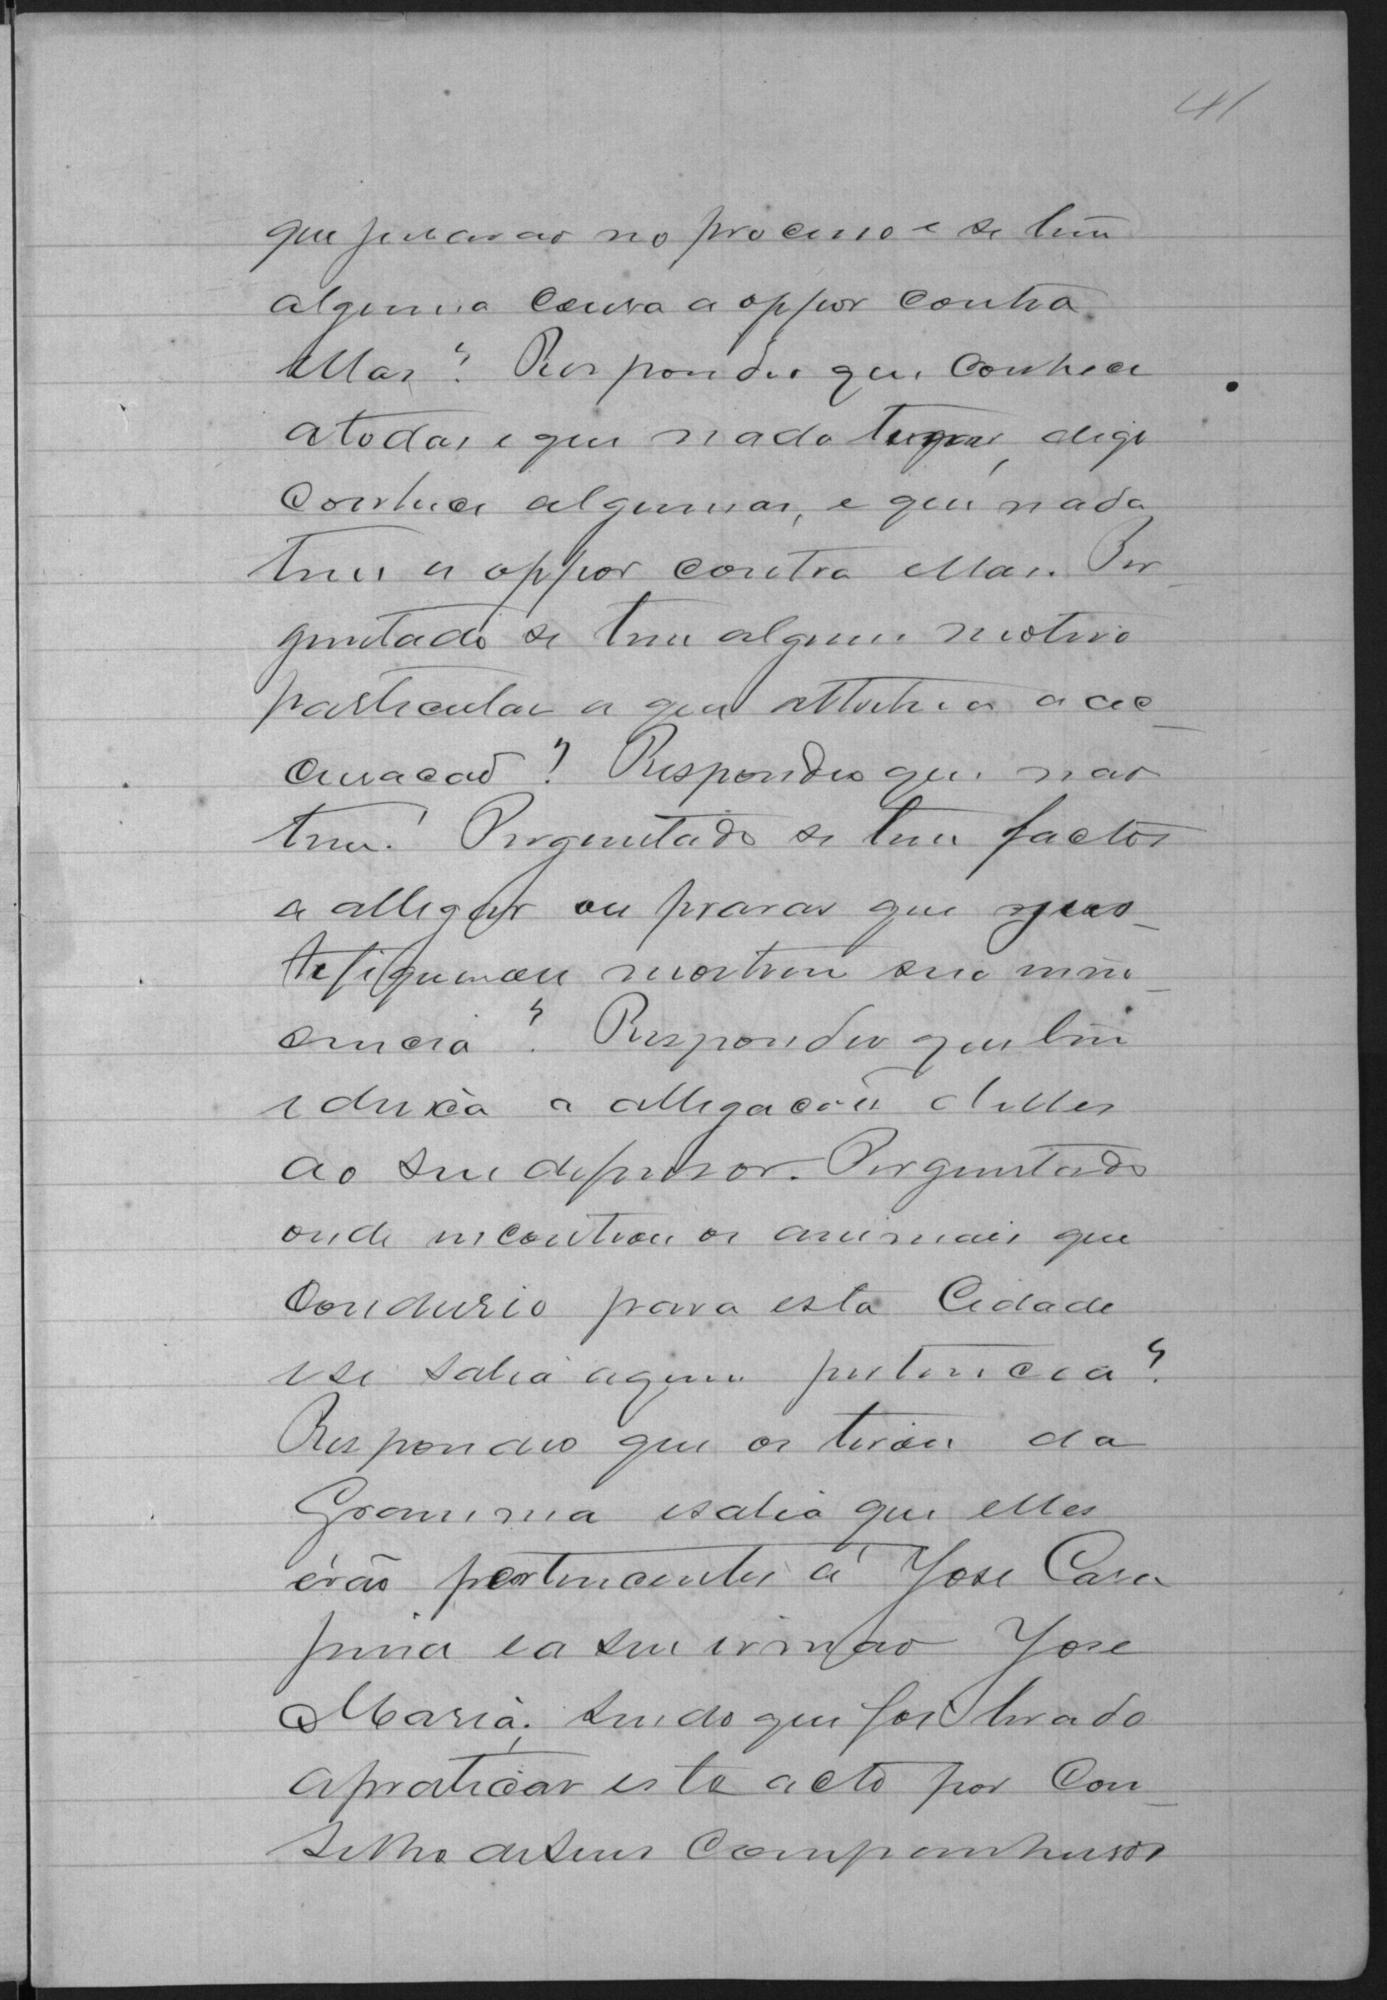 41
que jurarao no processo e se tem
alguma cousa a oppor contra
ellas? Respondeo que conhece
a todas e que nada digo
conhece algumas, e que nada
tem a oppor contra ellas. Per-
guntado se tem algum motivo
particular a que attribua a ac-
cusacaõ? Respondeo que nao
tem! Perguntado se tem factos
a allegar ou provas que jus-
tefiquem ou mostrem sua inno-
cencia? Respondeo que tem
e deixa a allegacaõ delles
ao seu defensor. Perguntado
onde incontrou os animais que
condusio para esta Cidade
e se sabia aquem pertencia?
Respondeo que os tirou da
Gramma e sabia que elles
éraõ pertencentes á Jose Cara
pina e a seu irmao Jose
Maria; sendo que foi levado
a praticar este acto por Con-
selho de seus Companheiros